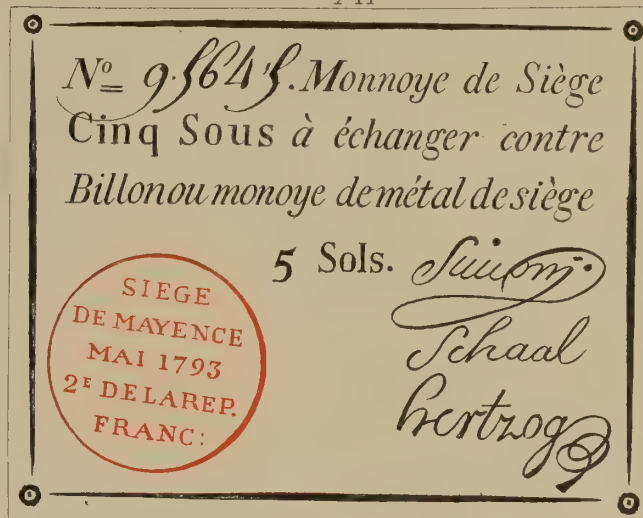 Nº 9.5645. Monnoye de Siège
Cinq Sous à échanger contre
Billon ou monoye de métal de siège
5 Sols.
Schaal
hertzog
SIEGE
DE MAYENCE
MAI 1793
2E DE LA REP.
FRANC: